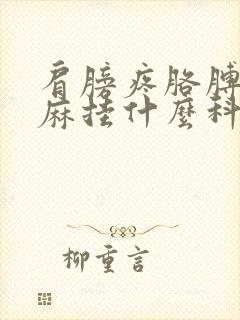 肩膀疼胳膊
麻挂什麼科
柳重言